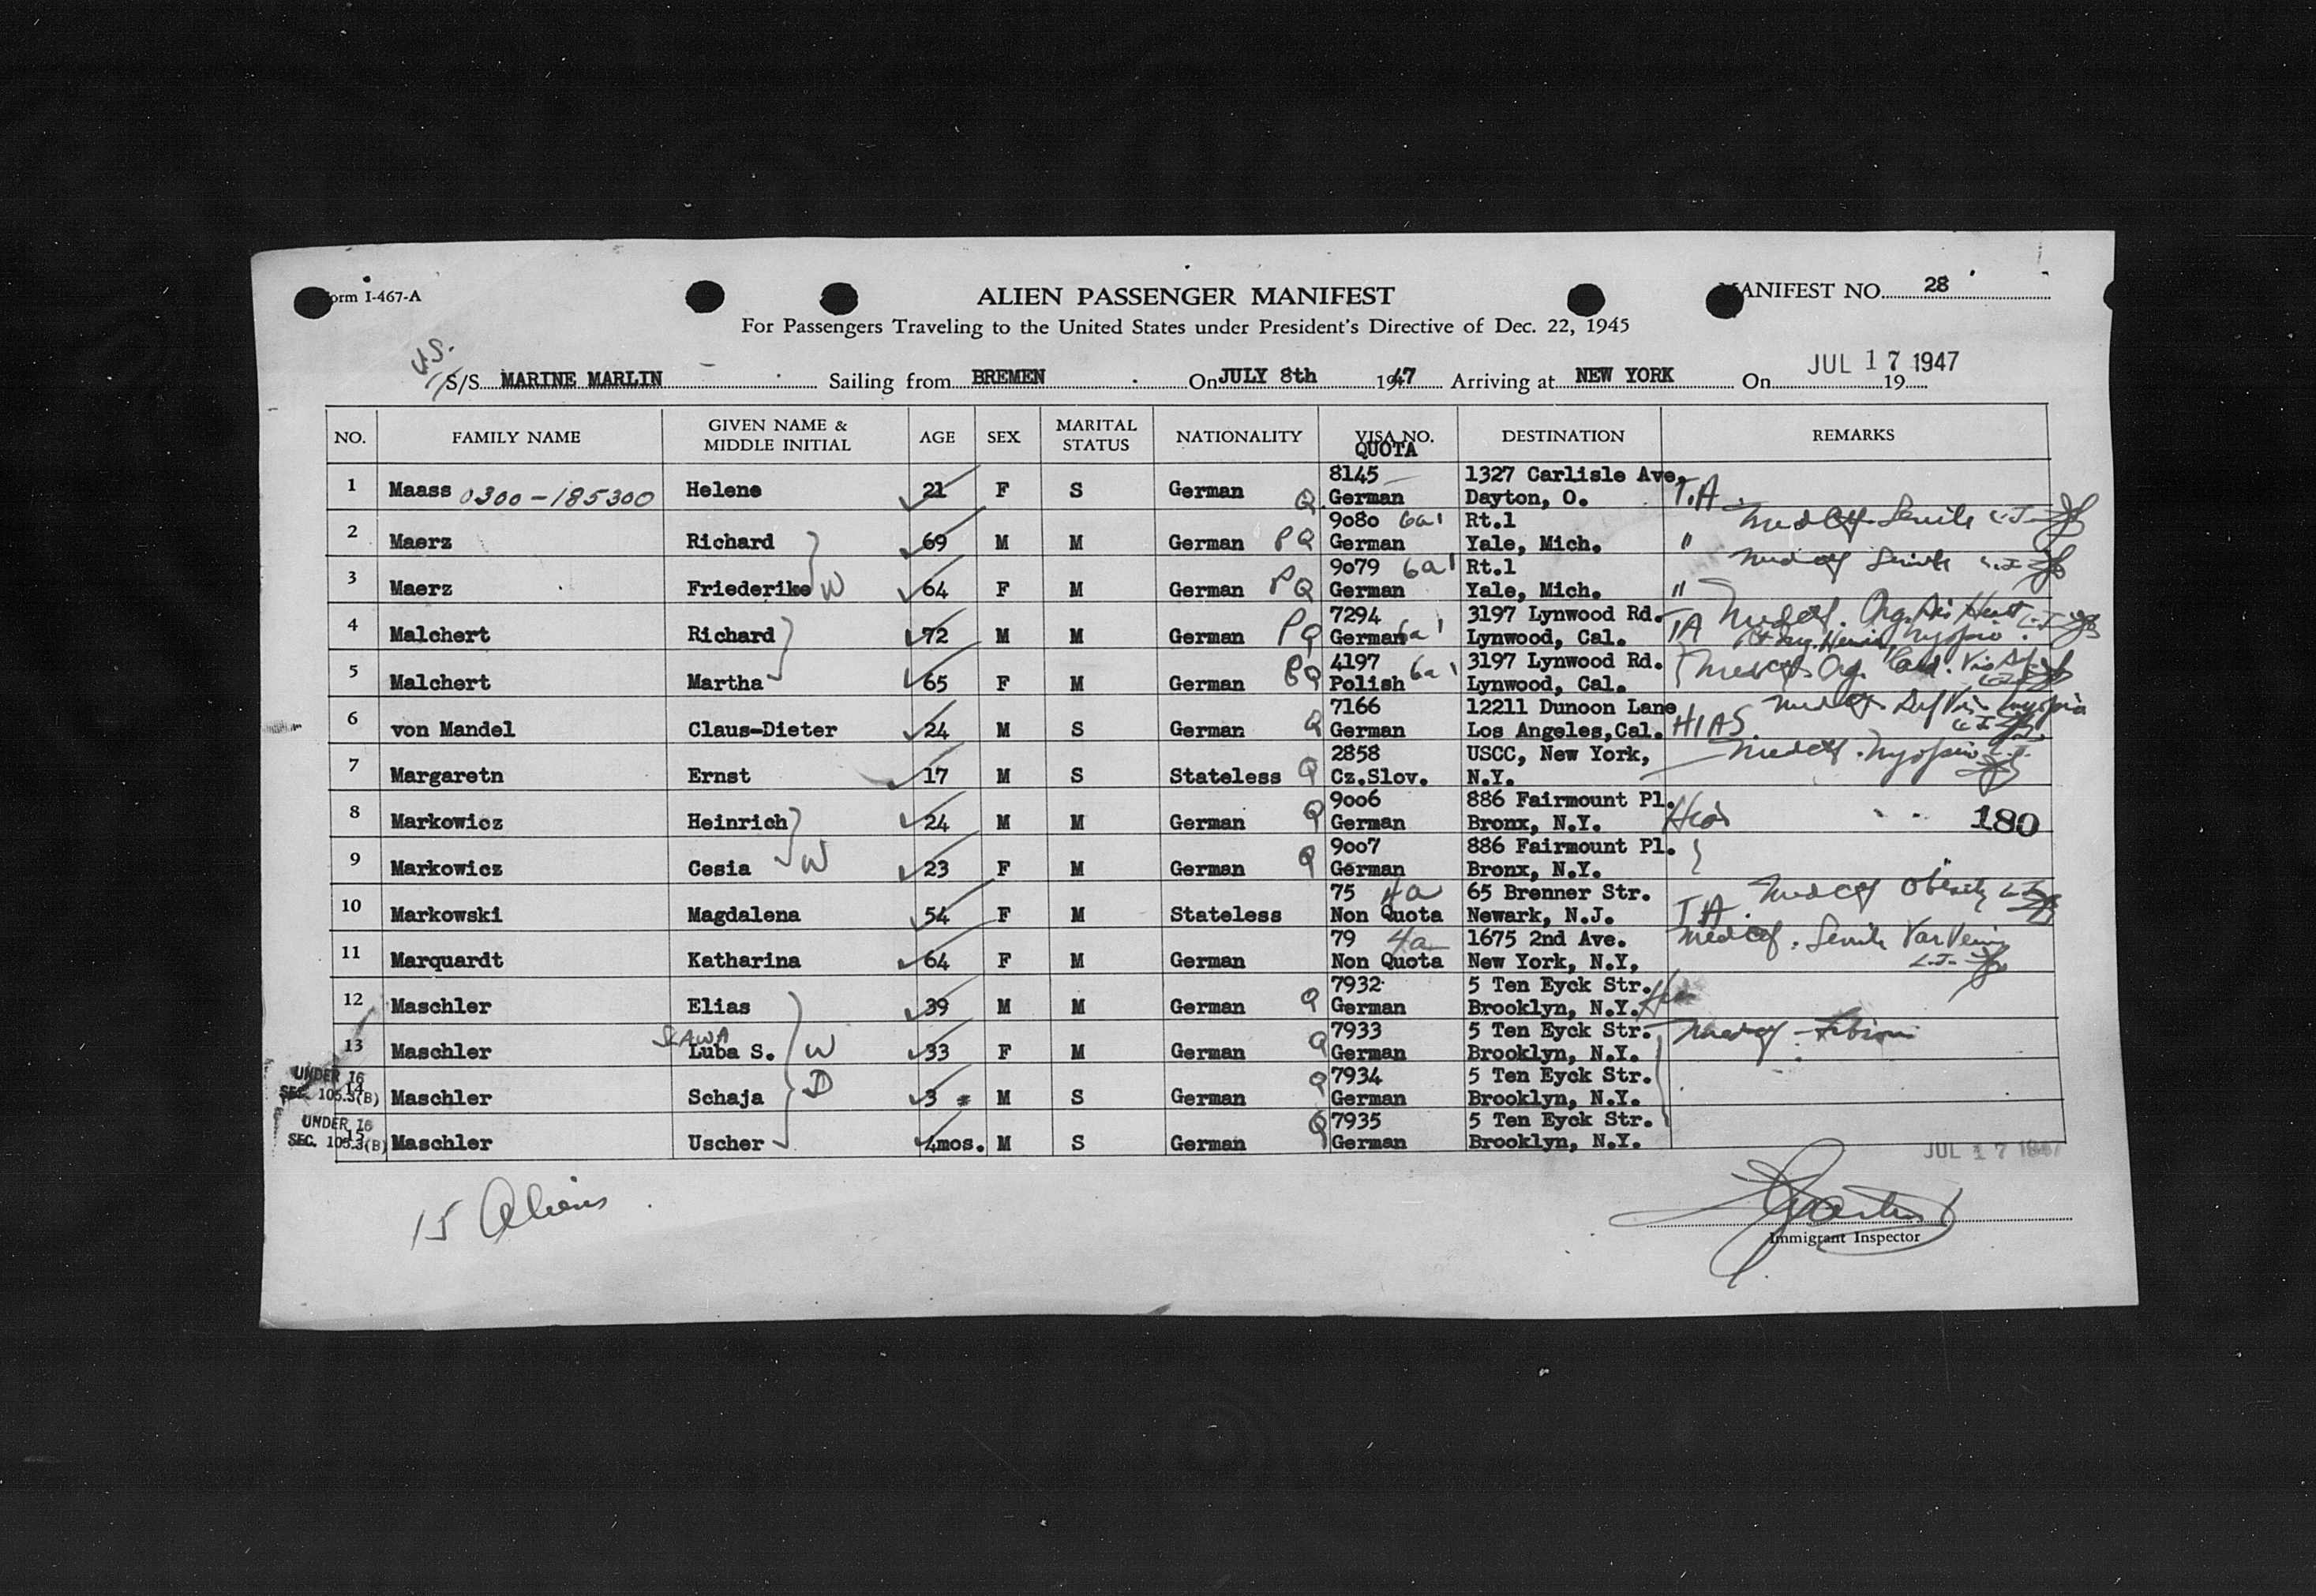 Form I-467-A
ALIEN PASSENGER MANIFEST
MANIFEST NO. 28
For Passengers Traveling to the United States under President's Directive of Dec. 22, 1945
U.S.
S/S MARINE MARLIN Sailing from BREMEN On JULY 8th 1947 Arriving at NEW YORK On JUL 17 1947 19
NO. FAMILY NAME GIVEN NAME & MIDDLE INITIAL AGE SEX MARITAL STATUS NATIONALITY VISA NO. QUOTA DESTINATION REMARKS
8145 1327 Carlisle Ave,
1 Maass 0300-185300 Helene 21 F S German Q German Dayton, O. T.A.
9080 6a1 Rt.1
2 Maerz Richard 69 M M German PQ German Yale, Mich. "
9079 6a1 Rt.1
3 Maerz Friederike W 64 F M German PQ German Yale, Mich. "
7294 3197 Lynwood Rd.
4 Malchert Richard 72 M M German PQ German 6a1 Lynwood, Cal. TA
4197 6a1 3197 Lynwood Rd.
5 Malchert Martha 65 F M German PQ Polish Lynwood, Cal.
7166 12211 Dunoon Lane
6 von Mandel Claus-Dieter 24 M S German Q German Los Angeles,Cal. HIAS
2858 USCC, New York,
7 Margaretn Ernst 17 M S Stateless Q Cz.Slov. N.Y.
9006 886 Fairmount Pl.
8 Markowicz Heinrich 24 M M German Q German Bronx, N.Y. Hias 180
9007 886 Fairmount Pl.
9 Markowicz Cesia W 23 F M German Q German Bronx, N.Y.
75 4a 65 Brenner Str.
10 Markowski Magdalena 54 F M Stateless Non Quota Newark, N.J. TA. Med Ctf Obesity
79 4a 1675 2nd Ave.
11 Marquardt Katharina 64 F M German Non Quota New York, N.Y, Med Ctf. Senile Var Veins
7932 5 Ten Eyck Str.
12 Maschler Elias 39 M M German Q German Brooklyn, N.Y.
SLAWA 7933 5 Ten Eyck Str.
13 Maschler Luba S. W 33 F M German Q German Brooklyn, N.Y.
UNDER 16 7934 5 Ten Eyck Str.
SEC. 105.3(B) 14 Maschler Schaja D 3 M S German Q German Brooklyn, N.Y.
UNDER 16 7935 5 Ten Eyck Str.
SEC. 105.3(B) 15 Maschler Uscher 4mos. M S German Q German Brooklyn, N.Y.
JUL 17 1947
15 Aliens
Immigrant Inspector